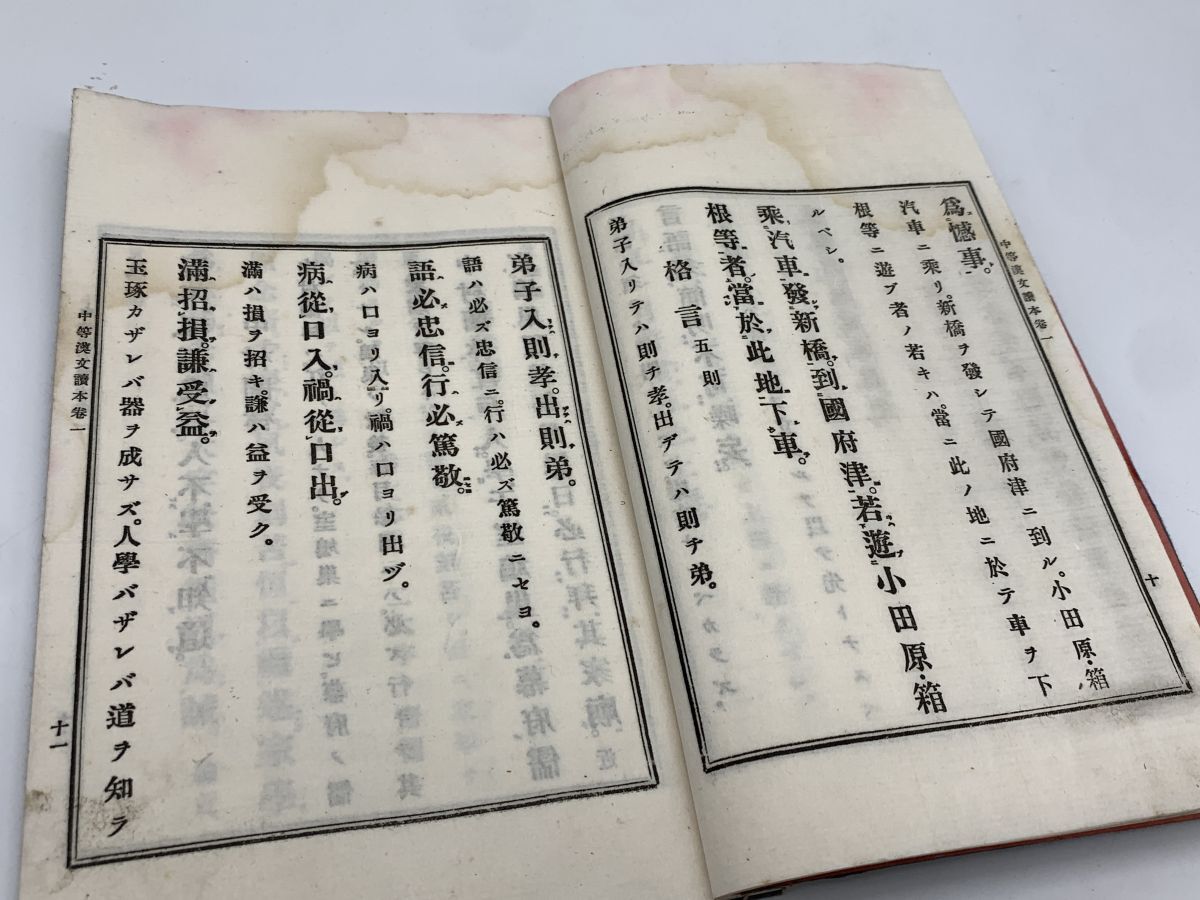 爲憾事。
汽車ニ乘リ。新橋ヲ發シテ國府津ニ到ル。小田原・箱
根等ニ遊ブ者ノ若キハ。當ニ此ノ地ニ於テ車ヲ下
ルベシ。
乘汽車發新橋。到國府津。若遊小田原・箱
根等者。當於此地下車。
格言 五則
弟子入リテハ則チ孝。出デテハ則チ弟。
中等漢文讀本卷一
十
弟子入則孝。出則弟。
語ハ必ズ忠信ニ。行ハ必ズ篤敬ニセヨ。
語必忠信。行必篤敬。
病ハ口ヨリ入リ。禍ハ口ヨリ出ヅ。
病從口入。禍從口出。
滿ハ損ヲ招キ。謙ハ益ヲ受ク。
滿招損。謙受益。
玉琢カザレバ器ヲ成サズ。人學バザレバ道ヲ知ラ
中等漢文讀本卷一
十一